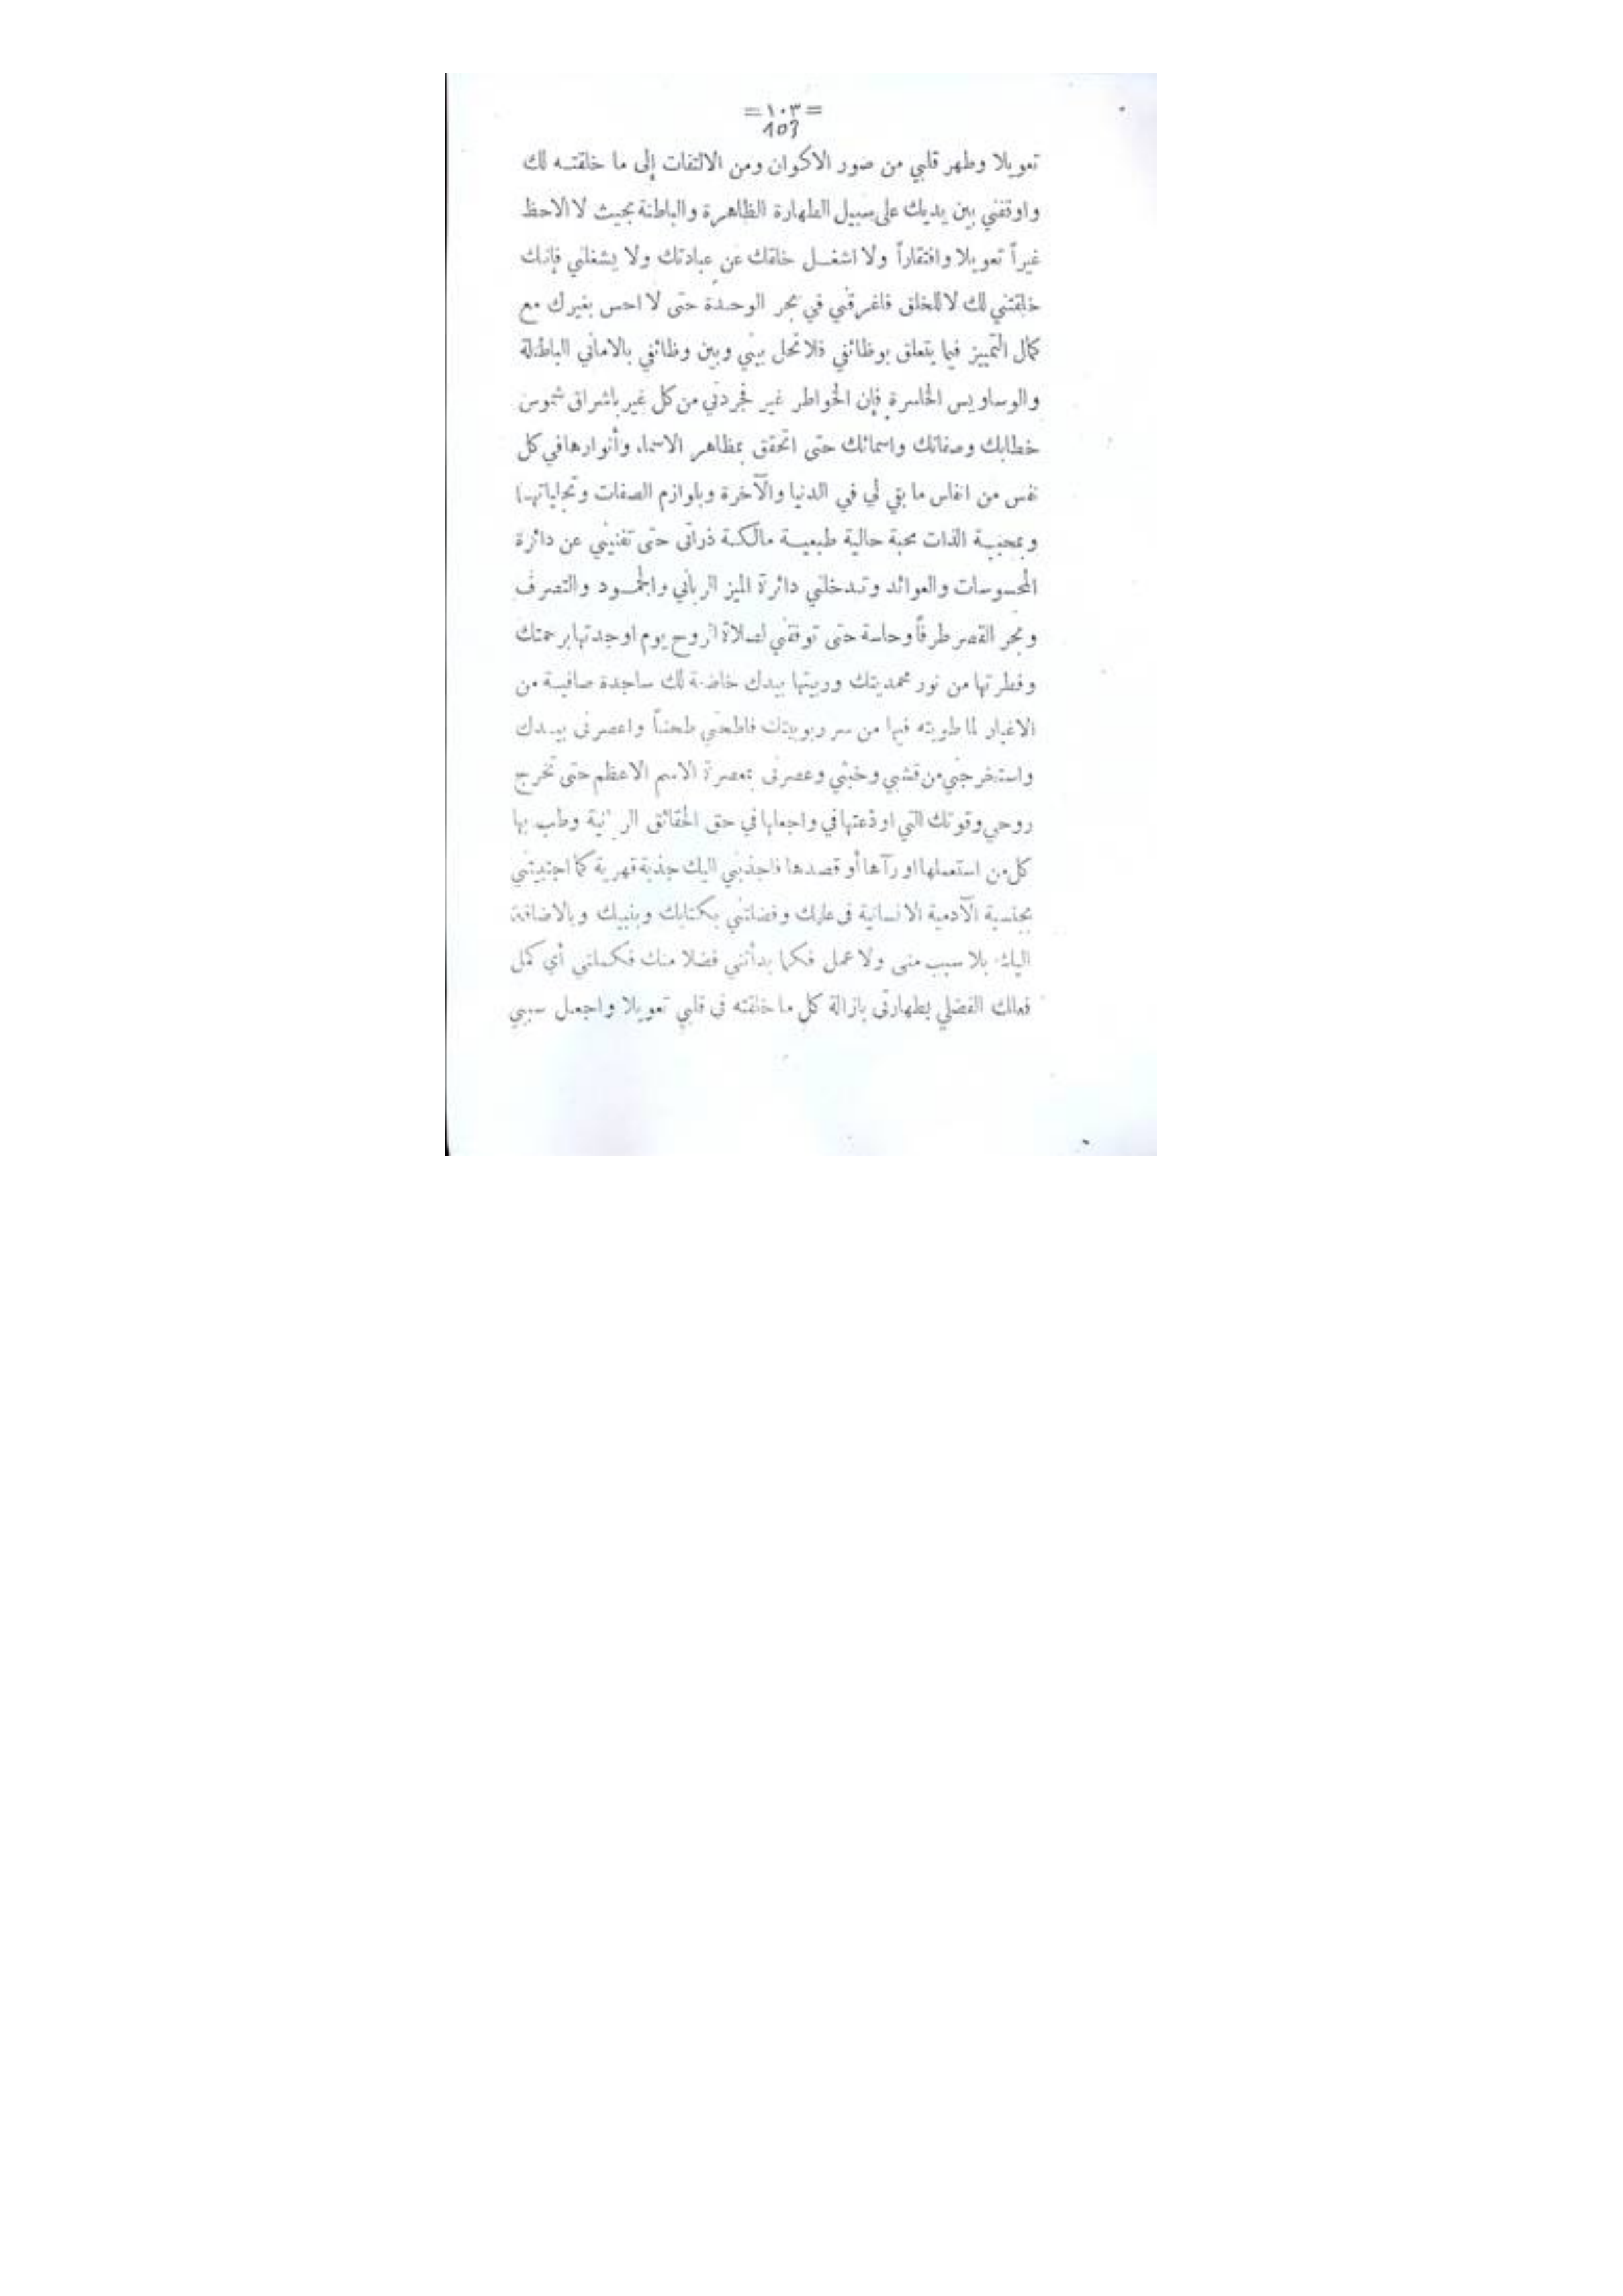 =١٠٣=
103
تعويلا وطهر قلبي من صور الاكوان ومن الالتفات إلى ما خلقته لك
واوقفني بين يديك على سبيل الطهارة الظاهرة والباطنة بحيث لا الاحظ
غيراً تعويلا وافتقاراً ولا اشغل خلقك عن عبادتك ولا يشغلني فإنك
خلقتني لك لا للخلق فاغرقني في بحر الوحدة حتى لا احس بغيرك مع
كمال التمييز فيما يتعلق بوظائفي فلا تحل بيني وبين وظائفي بالاماني الباطلة
والوساويس الخاسرة فإن الخواطر غير فجردني من كل غير باشراق شموس
خطابك وصفاتك واسمائك حتى اتحقق بمظاهر الاسماء وأنوارها في كل
نفس من انفاس ما بقي لي في الدنيا والآخرة وبلوازم الصفات وتجلياتها
وبمحبة الذات محبة حالية طبعية مالكة ذراتى حتى تفنيني عن دائرة
المحسوسات والعوائد وتدخلني دائرة الميز الرباني والجمود والتصرف
وبحر القصر طرفاً وحاسة حتى توقفني لصلاة الروح يوم اوجدتها برحمتك
وفطرتها من نور محمديتك وربيتها بيدك خاضعة لك ساجدة صافية من
الاغيار لما طويته فيها من سر ربوبيتك فاطحني طحناً واعصرنى بيدك
واستخرجني من قشبي وخبثي وعصرنى بمعصرة الاسم الاعظم حتى تخرج
روحي وقوتك التي اودعتها في واجعلها في حق الحقائق وطب بها
كل من استعملها او رآها أو قصدها فاجذبني اليك جذبة قهرية كما اجتبيتني
بجنسية الآدمية الانسانية فى علمك وفضلتني بكتابك وبنبيك وبالاضافة
اليك بلا سبب منى ولا عمل فكما بدأتني فضلا منك فكملني أي كمل
فعلك الفضلي بطهارتى بازالة كل ما خلقته في قلبي تعويلا واجعل سببي